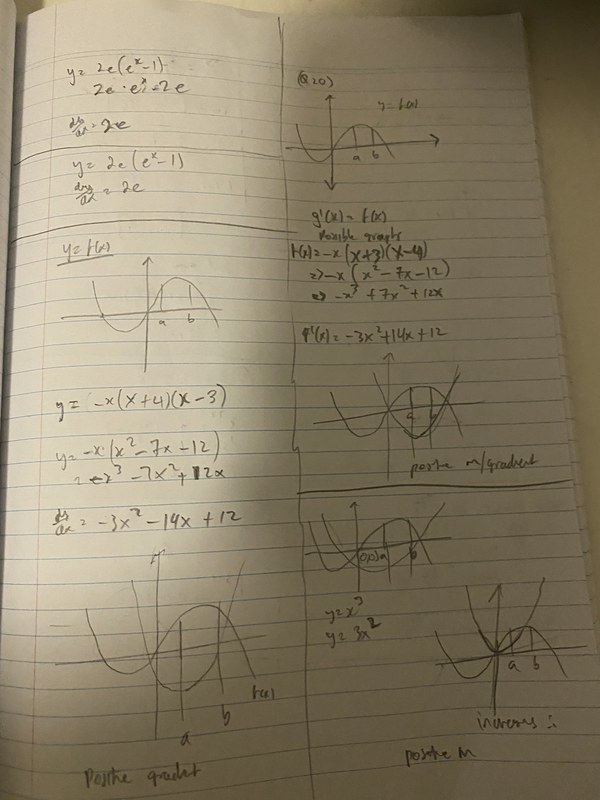 y = 2e(e^x - 1)
2e · e^x - 2e
dy/dx = 2e
y = 2e (e^x - 1)
dy/dx = 2e
y = f(x)
a b
y = -x(x+4)(x-3)
y = -x(x² - 7x - 12)
= -x³ - 7x² + 12x
dy/dx = -3x² - 14x + 12
f(x)
a
b
Positive gradient
(Q20)
y = f(x)
a b
g'(x) = f(x)
Possible graphs
f(x) = -x(x+3)(x-4)
=> -x(x² - 7x - 12)
=> -x³ + 7x² + 12x
f'(x) = -3x² + 14x + 12
a b
positive m/gradient
(0,0) a b
y = x³
y = 3x²
a b
increases ∴
positive m